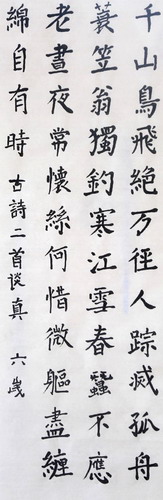 千山鳥飛絶万徑人踪滅孤舟
蓑笠翁獨釣寒江雪春蠶不應
老晝夜常懷絲何惜微軀盡纏
綿自有時古詩二首談真 六歲